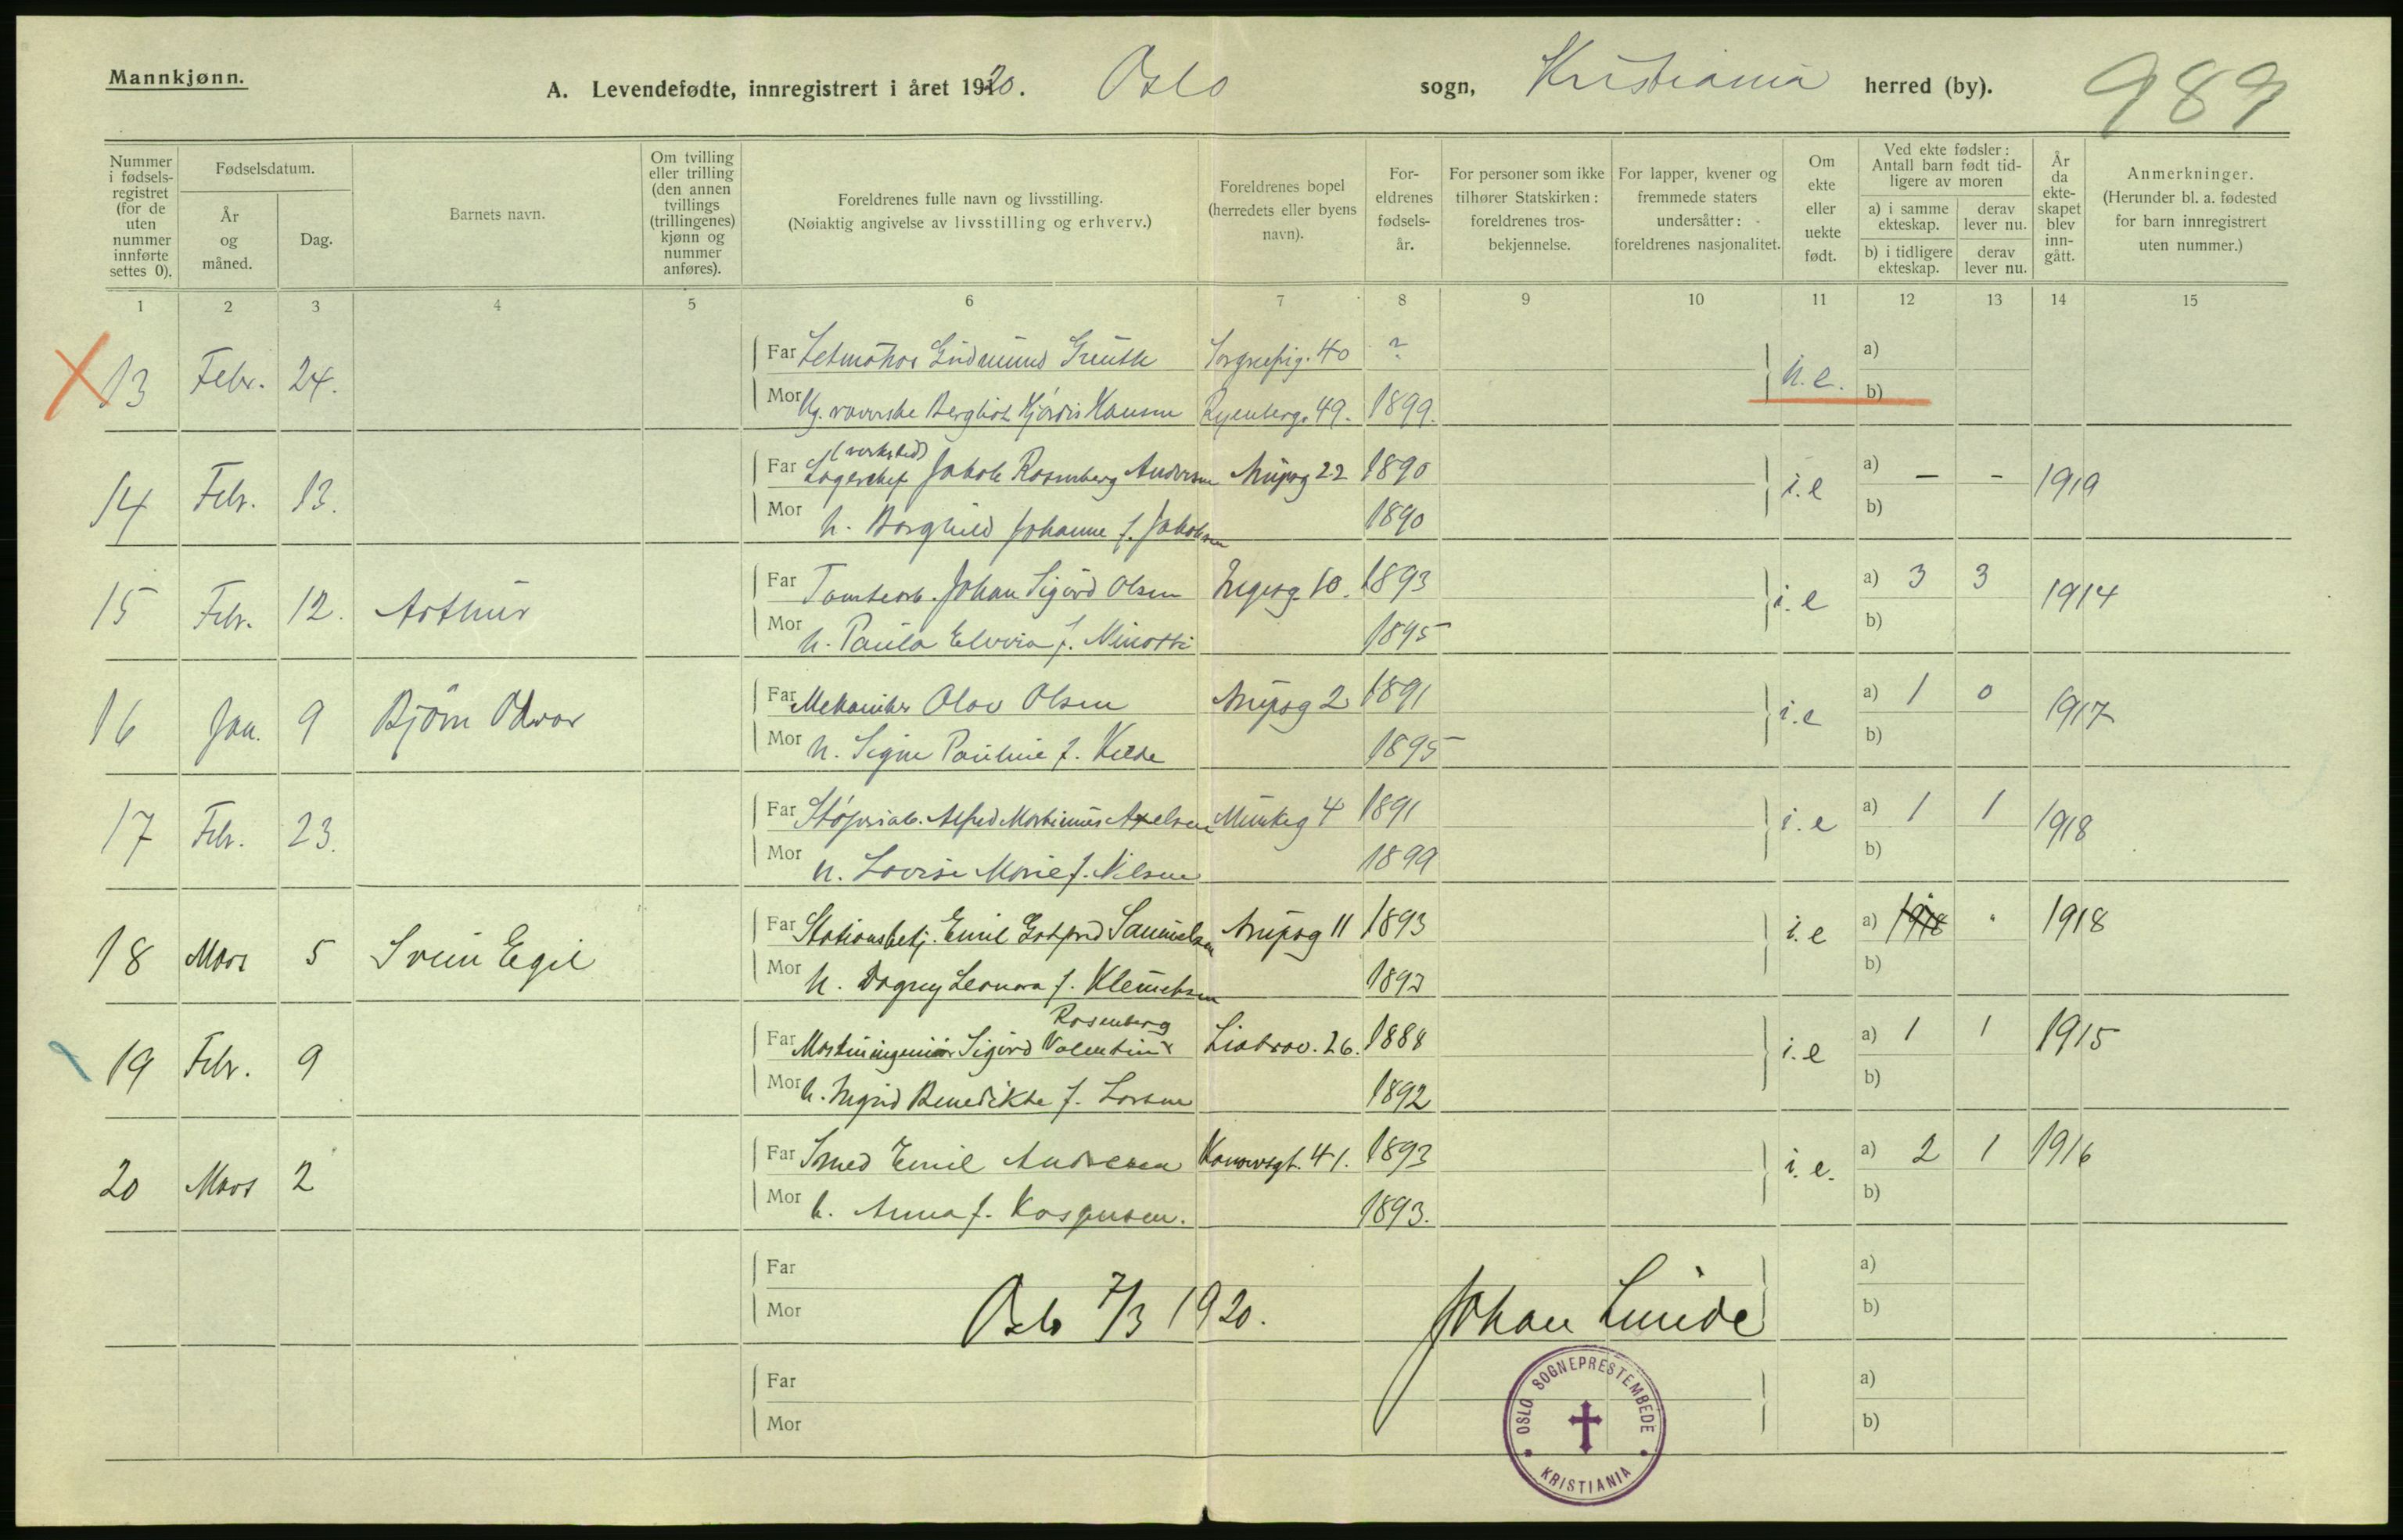 Mannkjønn.
A. Levendefødte, innregistrert i året 1920. Oslo sogn, Kristiania herred (by).
989
Nummer i fødsels-registret (for de uten nummer innførte settes 0).
Fødselsdatum.
År og måned.
Dag.
Barnets navn.
Om tvilling eller trilling (den annen tvillings (trillingenes) kjønn og nummer anføres).
Foreldrenes fulle navn og livsstilling.
(Nøiaktig angivelse av livsstilling og erhverv.)
Foreldrenes bopel (herredets eller byens navn).
For-eldrenes fødsels-år.
For personer som ikke tilhører Statskirken: foreldrenes tros-bekjennelse.
For lapper, kvener og fremmede staters undersåtter: foreldrenes nasjonalitet.
Om ekte eller uekte født.
Ved ekte fødsler: Antall barn født tid-ligere av moren
a) i samme ekteskap.
derav lever nu.
b) i tidligere ekteskap.
derav lever nu.
År da ekte-skapet blev inn-gått.
Anmerkninger.
(Herunder bl. a. fødested for barn innregistrert uten nummer.)
1 2 3 4 5 6 7 8 9 10 11 12 13 14 15
13 Febr. 24. Far Gudmund 40 ? u.e. a)
Mor Hjørdis Hansen Ryenberg. 49. 1899. b)
(verksted)
14 Febr. 13. Far Lagerchef Jakob Rosenberg Andersen Arupsg 22 1890 i.e a) – – 1919
Mor h. Borghild Johanne f. Jakobsen 1890 b)
15 Febr. 12. Arthur Far Tomtearb. Johan Sigurd Olsen 10. 1893 i.e a) 3 3 1914
Mor h. Paula Elvira f. Minotti 1895 b)
16 Jan. 9 Bjørn Odvar Far Mekaniker Olav Olsen Arupsg 2 1891 i.e a) 1 0 1917
Mor h. Signe Pauline f. 1895 b)
17 Febr. 23. Far Støperiarb. Alfred Martinius Axelsen Munkeg 4 1891 i.e a) 1 1 1918
Mor h. Lovise Marie f. Nilsen 1899 b)
18 Mars 5 Svein Egil Far Stationsbetj. Emil Gotfred Samuelsen Arupsg 11 1893 i.e a) 1918 " 1918
Mor h. Dagny Leonora f. Klemetsen 1893 b)
Rosenberg
19 Febr. 9 Far Maskiningeniør Sigurd Valentin x Liabrov. 26. 1888 i.e a) 1 1 1915
Mor h. Ingrid Benedikte f. Larsen 1892 b)
20 Mars 2 Far Smed Emil Andresen Kanowsgt. 41. 1893 i.e. a) 2 1 1916
Mor h. Anna f. Kaspersen. 1893. b)
Far a)
Mor Oslo 7/3 1920. Johan Lunde b)
Far a)
Mor b)
OSLO SOGNEPRESTEMBEDE
KRISTIANIA